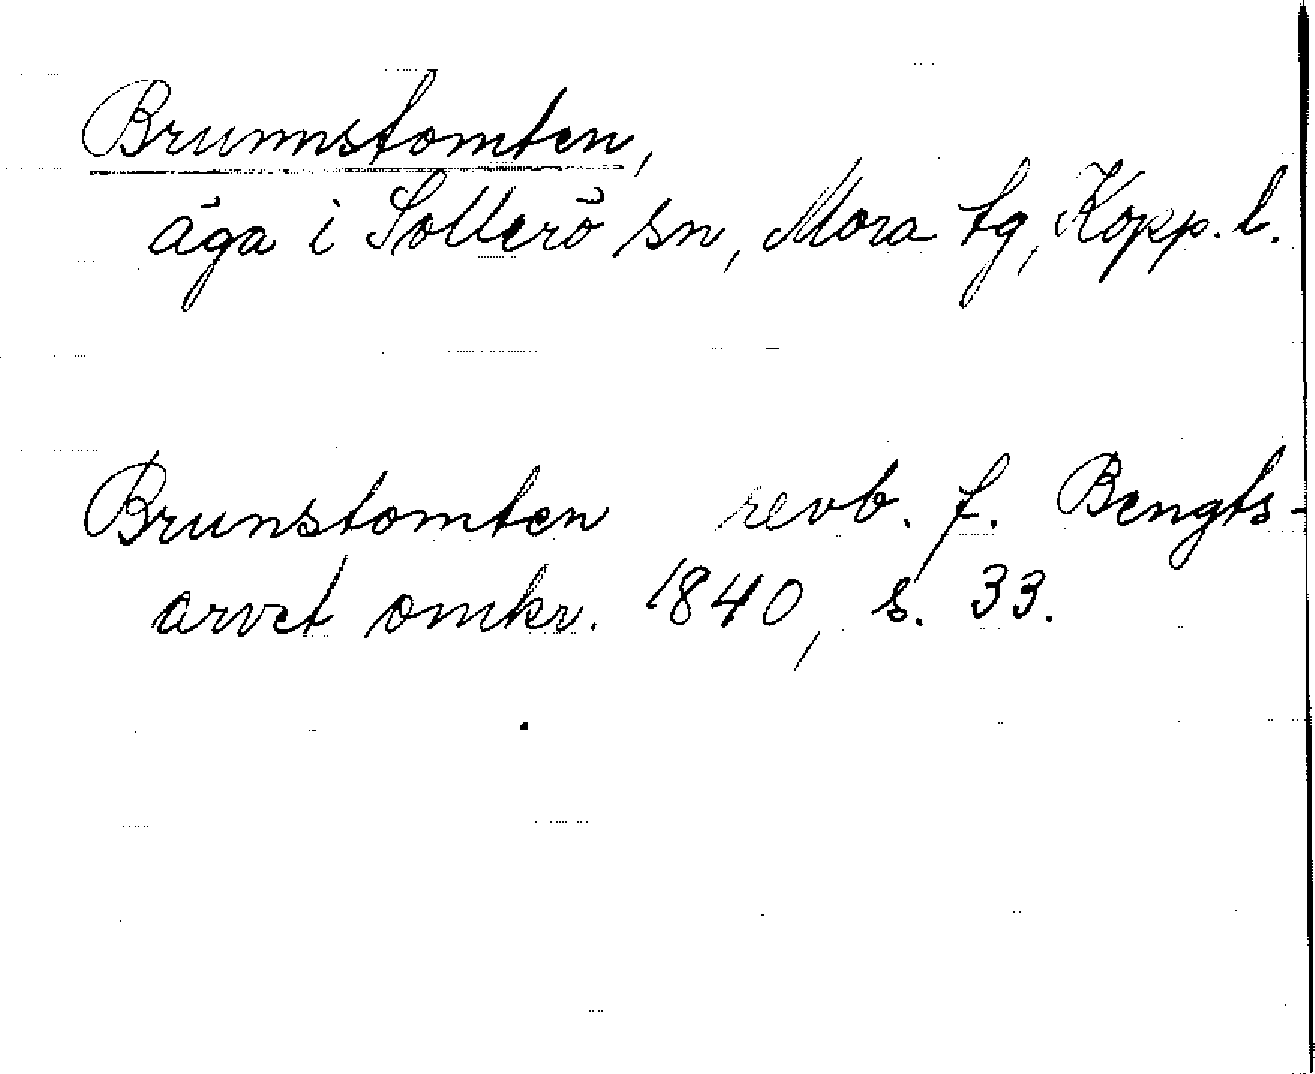 Brunnstomten,
äga i Sollerö sn, Mora tg, Kopp. l.
Brunstomten revb. f. Bengts-
arvet omkr. 1840, s. 33.